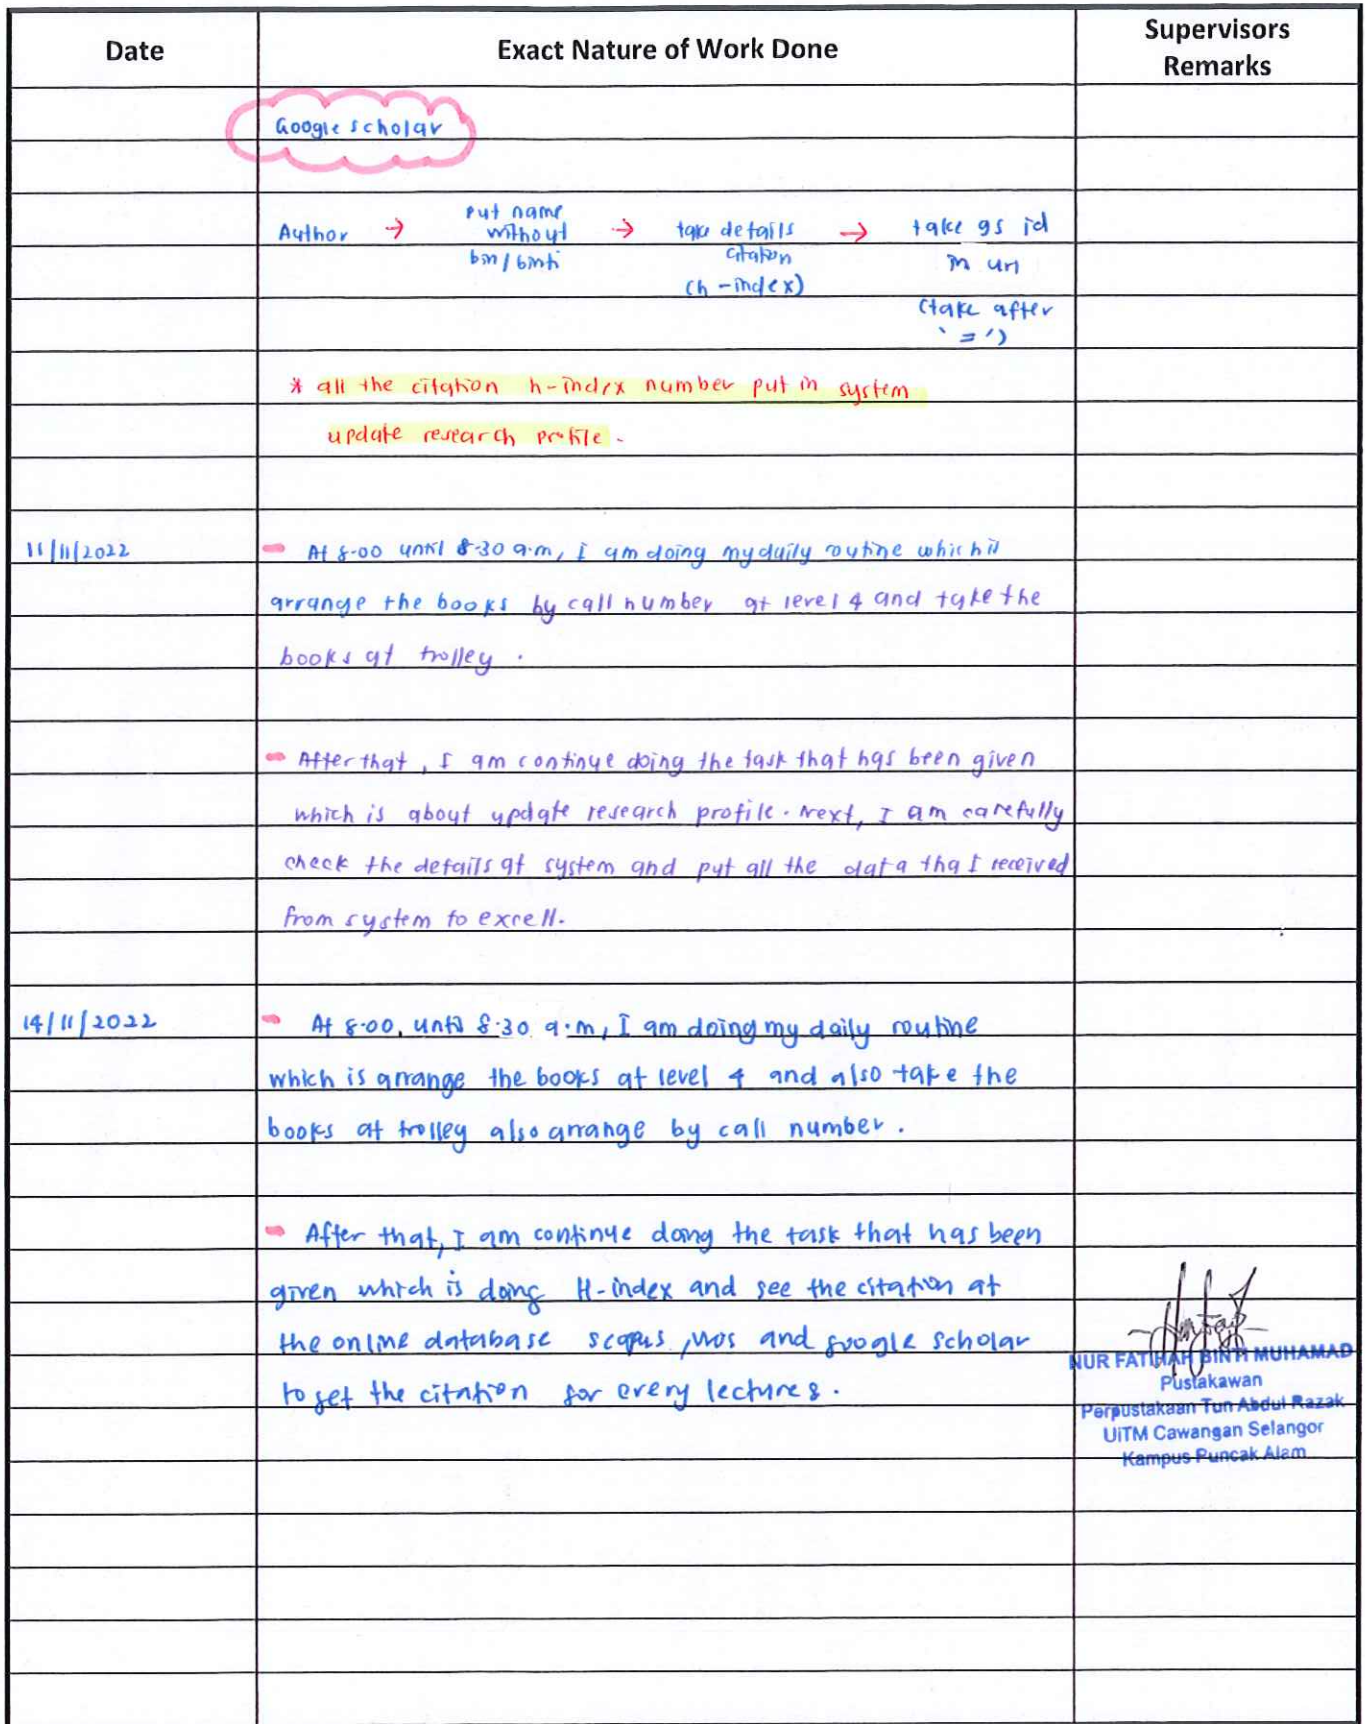 Date
Exact Nature of Work Done
Supervisors
Remarks
Google scholar
Author → put name without bin/binti → take details citation (h-index) → take gs id in url (take after '=')
* all the citation h-index number put in system
update research profile.
11/11/2022
- At 8.00 until 8.30 a.m, I am doing my daily routine which is
arrange the books by call number at level 4 and take the
books at trolley.
- After that, I am continue doing the task that has been given
which is about update research profile. Next, I am carefully
check the details at system and put all the data tha I received
from system to excell.
14/11/2022
- At 8.00, until 8.30 a.m, I am doing my daily routine
which is arrange the books at level 4 and also take the
books at trolley also arrange by call number.
- After that, I am continue doing the task that has been
given which is doing H-index and see the citation at
the online database scopus, wos and google scholar
to get the citation for every lectures.
NUR FATIHAH BINTI MUHAMAD
Pustakawan
Perpustakaan Tun Abdul Razak
UiTM Cawangan Selangor
Kampus Puncak Alam